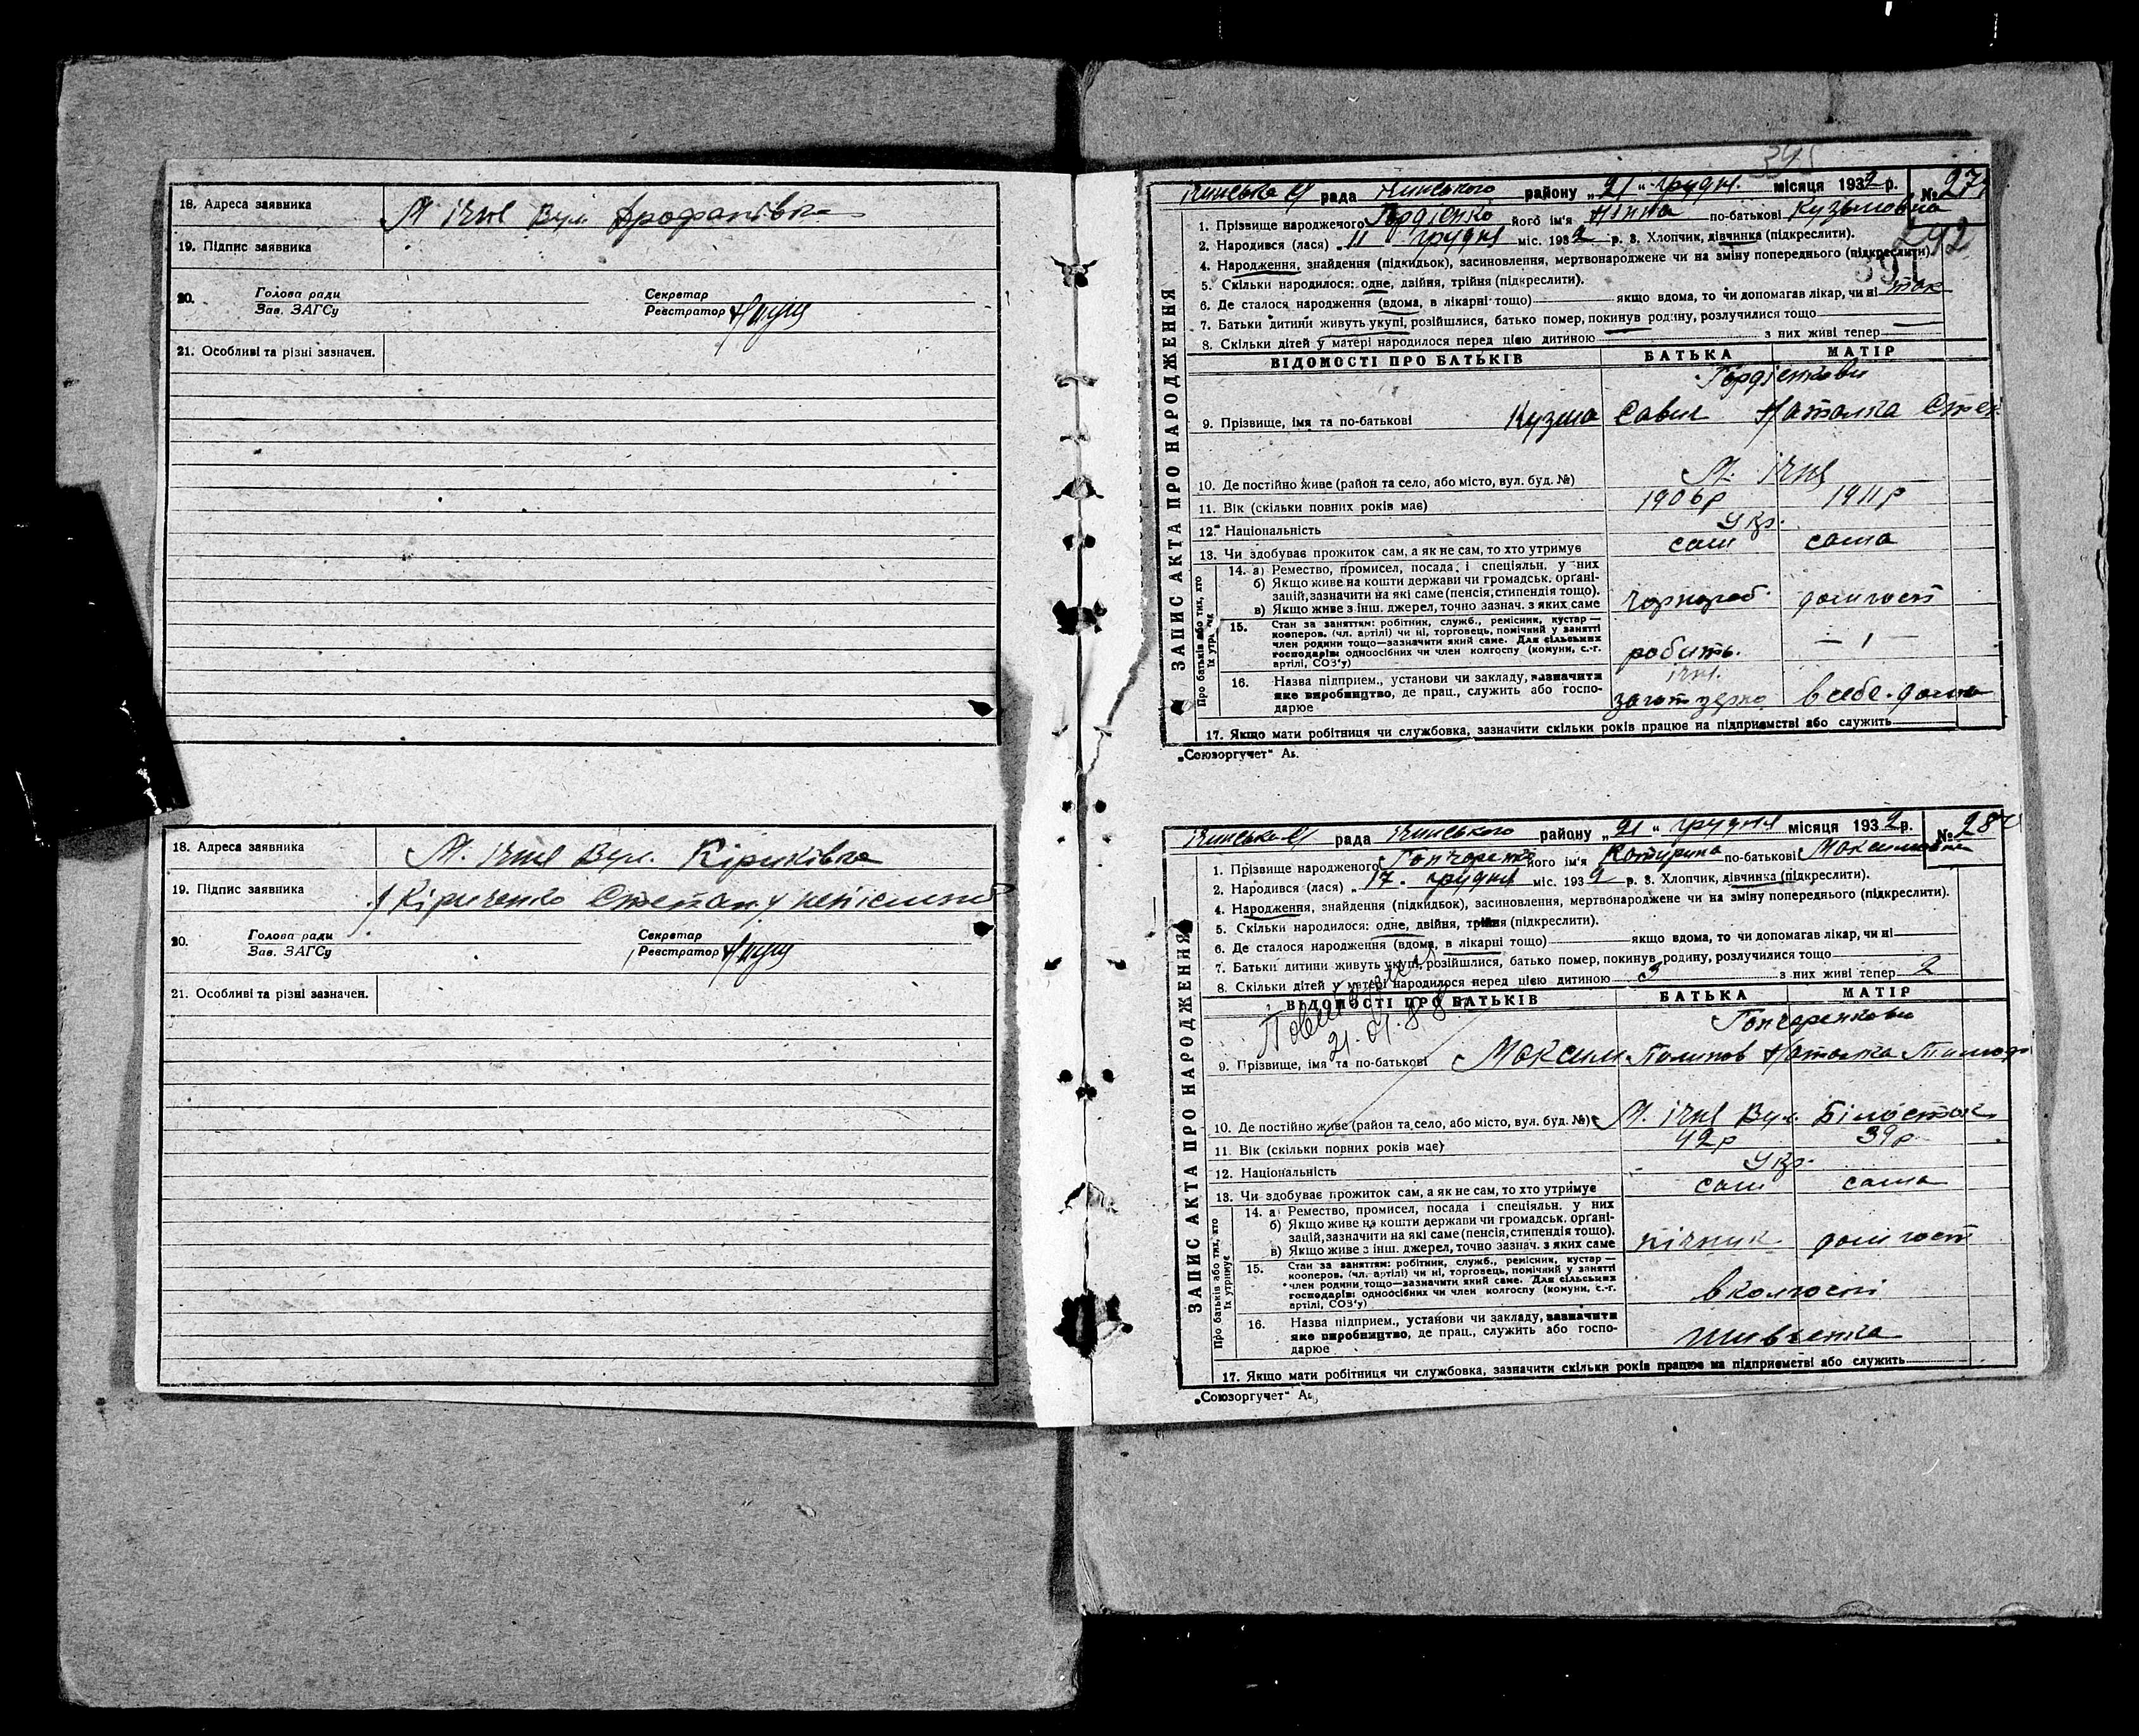 18. Адреса заявника М Ічня Вул
19. Підпис заявника
20. Голова ради Секретар
Зав. ЗАГСу Реєстратор
21. Особливі та різні зазначен.
18. Адреса заявника М. Ічня Вул. Кіриківка
19. Підпис заявника Кириченко Степан
20. Голова ради Секретар
Зав. ЗАГСу Реєстратор
21. Особливі та різні зазначен.
рада Ічнського району „21“ грудн. місяця 1932 р. № 27
1. Прізвище народженого Гордієнко його ім'я Нінна по-батькові Кузьмовна
2. Народився (лася) „11 грудня міс. 1932 р. 3. Хлопчик, дівчинка (підкреслити).
292
4. Народження, знайдення (підкидьок), засиновлення, мертвонароджене чи на зміну попереднього (підкреслити)
391
5. Скільки народилося: одне, двійня, трійня (підкреслити).
6. Де сталося народження (вдома, в лікарні тощо) якщо вдома, то чи допомагав лікар, чи ні так
7. Батьки дитини живуть укупі, розійшлися, батько помер, покинув родину, розлучилися тощо
8. Скільки дітей у матері народилося перед цією дитиною з них живі тепер
ЗАПИС АКТА ПРО НАРОДЖЕННЯ
ВІДОМОСТІ ПРО БАТЬКІВ БАТЬКА МАТІР
Гордієнкови
9. Прізвище, імя та по-батькові Кузма Савич Наталка Степ
10. Де постійно живе (район та село, або місто, вул. буд. №) М. Ічня
11. Вік (скільки повних років має) 1906р 1911р
12. Національність Укр.
13. Чи здобуває прожиток сам, а як не сам, то хто утримує сам сама
Про батьків або тих, хто їх утримує
14. а) Ремество, промисел, посада і спеціяльн. у них
б) Якщо живе на кошти держави чи громадськ. орґані-
зацій, зазначити на які саме (пенсія, стипендія тощо).
в) Якщо живе з інш. джерел, точно зазнач. з яких саме чорнороб. домгосп
15. Стан за заняттям: робітник, служб., ремісник, кустар —
кооперов. (чл. артілі) чи ні, торговець, помічний у занятті
член родини тощо—зазначити який саме. Для сільських
господарів: одноосібних чи член колгоспу (комуни, с.-г.
артілі, СОЗ'у) робить.
16. Назва підприєм., установи чи закладу, зазначити
яке виробництво, де прац., служить або госпо-
дарює Ічн. заготзерно в себе дома
17. Якщо мати робітниця чи службовка, зазначити скільки років працює на підприємстві або служить
„Союзоргучет“
рада Ічнського району „21“ грудня місяця 1932 р. № 280
1. Прізвище народженого Гончаренко його ім'я Катирина по-батькові Максимовна
2. Народився (лася) „17. грудня міс. 1932 р. 3. Хлопчик, дівчинка (підкреслити).
4. Народження, знайдення (підкидьок), засиновлення, мертвонароджене чи на зміну попереднього (підкреслити).
5. Скільки народилося: одне, двійня, трійня (підкреслити).
6. Де сталося народження (вдома, в лікарні тощо) якщо вдома, то чи допомагав лікар, чи ні
7. Батьки дитини живуть укупі, розійшлися, батько помер, покинув родину, розлучилися тощо
8. Скільки дітей у матері народилося перед цією дитиною 3 з них живі тепер 2
ЗАПИС АКТА ПРО НАРОДЖЕННЯ
ВІДОМОСТІ ПРО БАТЬКІВ БАТЬКА МАТІР
Гончаренкови
9. Прізвище, імя та по-батькові Максим Пилипов Наталка
10. Де постійно живе (район та село, або місто, вул. буд. №) М. Ічня Вул.
11. Вік (скільки повних років має) 42р 39р
12. Національність Укр.
13. Чи здобуває прожиток сам, а як не сам, то хто утримує сам сама
Про батьків або тих, хто їх утримує
14. а) Ремество, промисел, посада і спеціяльн. у них
б) Якщо живе на кошти держави чи громадськ. орґані-
зацій, зазначити на які саме (пенсія, стипендія тощо).
в) Якщо живе з інш. джерел, точно зазнач. з яких саме пічник домгосп
15. Стан за заняттям: робітник, служб., ремісник, кустар —
кооперов. (чл. артілі) чи ні, торговець, помічний у занятті
член родини тощо—зазначити який саме. Для сільських
господарів: одноосібних чи член колгоспу (комуни, с.-г.
артілі, СОЗ'у) в колгоспі
16. Назва підприєм., установи чи закладу, зазначити
яке виробництво, де прац., служить або госпо-
дарює Шивченка
17. Якщо мати робітниця чи службовка, зазначити скільки років працює на підприємстві або служить
„Союзоргучет“